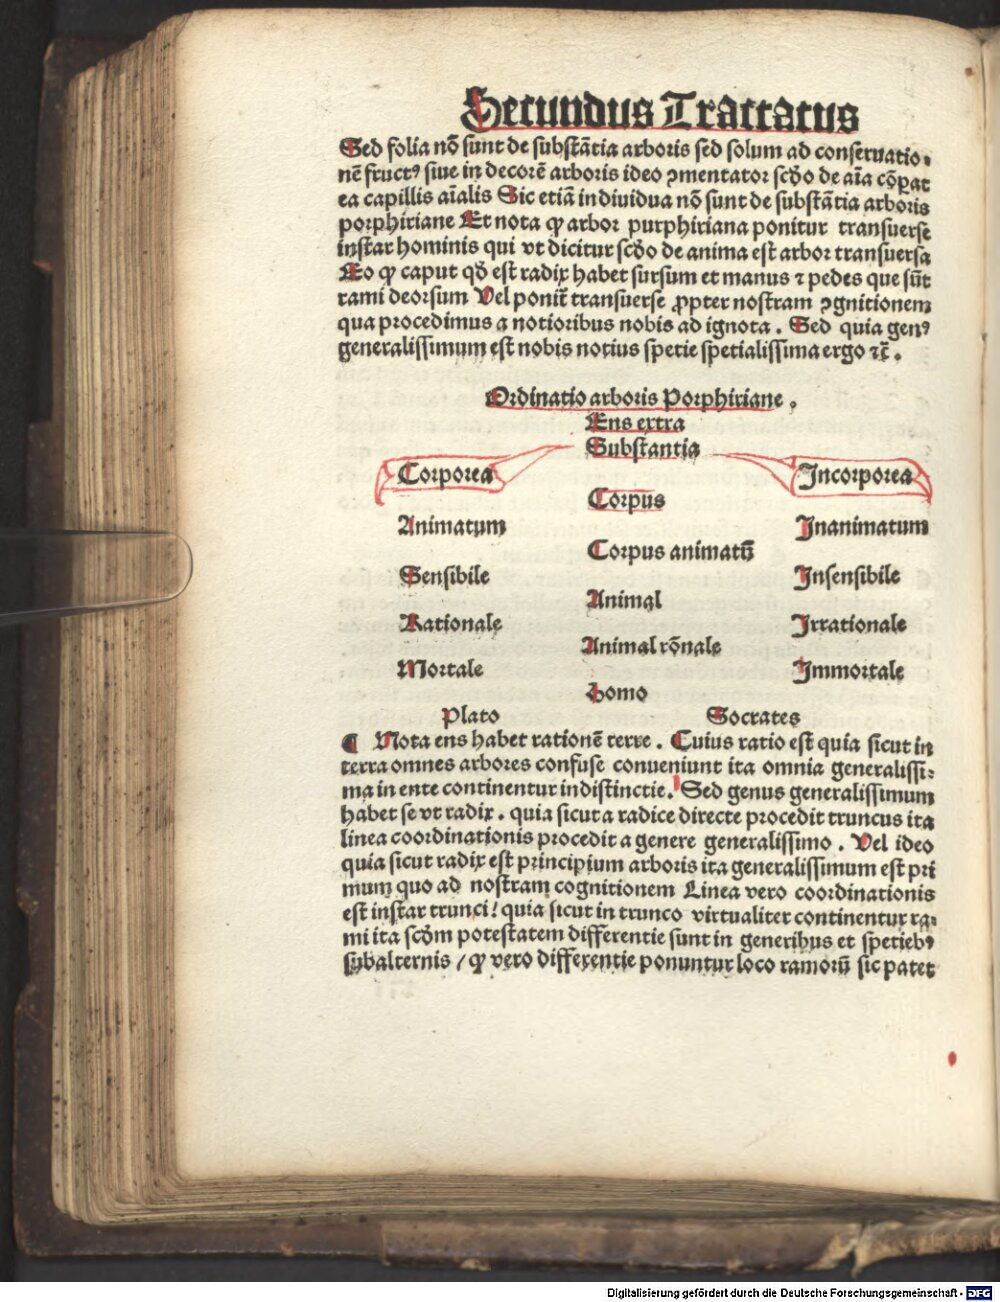 Secundus Tractatus
Sed folia nō sunt de substātia arboris sed solum ad conseruatio⸗
nē fructꝰ siue in decorē arboris ideo ꝯmentator scḋo de aīa cōꝑat
ea capillis aīalis Sic etiā indiuidua nō sunt de substātia arboris
porphiriane Et nota ꝙ arbor purphiriana ponitur transuerse
instar hominis qui vt dicitur scḋo de anima est arbor transuersa
Eo ꝙ caput qḋ est radix habet sursum et manus ⁊ pedes que sūt
rami deorsum Vel ponit̄ transuerse ꝓpter nostram ꝯgnitionem
qua procedimus a notioribus nobis ad ignota. Sed quia genꝰ
generalissimum est nobis notius specie specialissima ergo ⁊c̄.
Ordinatio arboris Porphiriane.
Ens extra
Substantia
Corporea Incorporea
Corpus
Animatum Inanimatum
Corpus animatū
Sensibile Insensibile
Animal
Rationale Irrationale
Animal rōnale
Mortale Immortale
Homo
Plato Socrates
¶ Nota ens habet rationē terre. Cuius ratio est quia sicut in
terra omnes arbores confuse conueniunt ita omnia generalissi⸗
ma in ente continentur indistinctie. Sed genus generalissimum
habet se vt radix. quia sicut a radice directe procedit truncus ita
linea coordinationis procedit a genere generalissimo. Vel ideo
quia sicut radix est principium arboris ita generalissimum est pri
mum quo ad nostram cognitionem Linea vero coordinationis
est instar trunci/ quia sicut in trunco virtualiter continentur ra⸗
mi ita scḋm potestatem differentie sunt in generibus et speciebꝰ
sybalternis / ꝙ vero differentie ponuntur loco ramorū sic patet
Digitalisierung gefördert durch die Deutsche Forschungsgemeinschaft - DFG